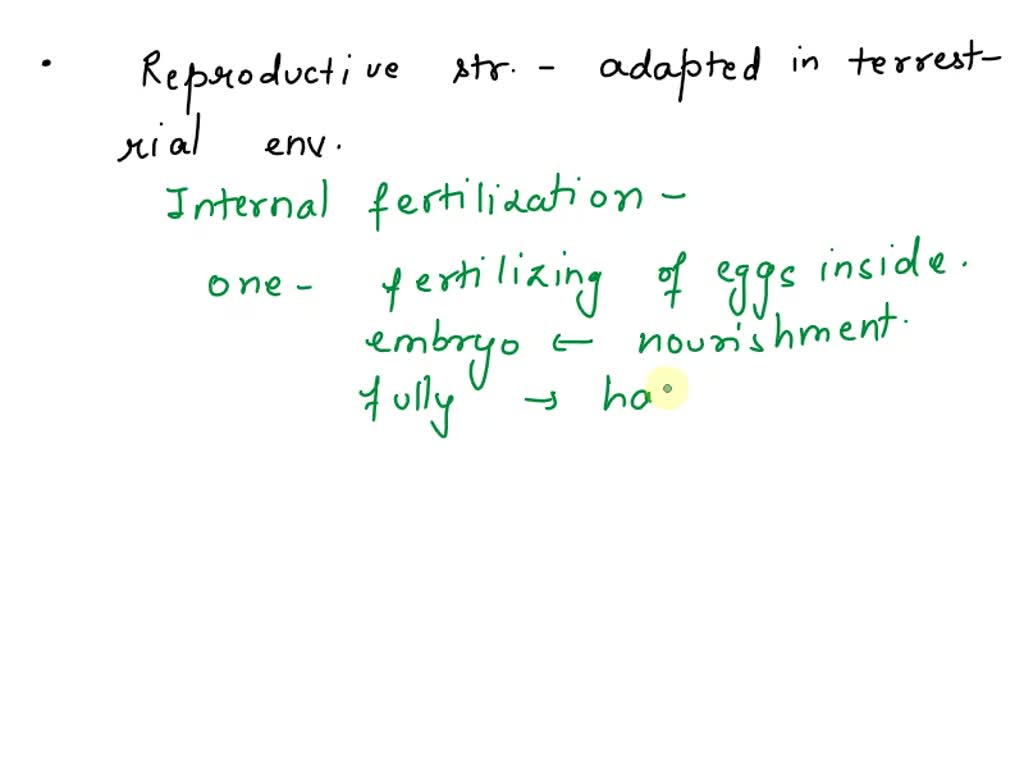 • Reproductive str. - adapted in terrest-
rial env.
Internal fertilization -
one - fertilizing of eggs inside.
embryo ← nourishment.
fully → ha